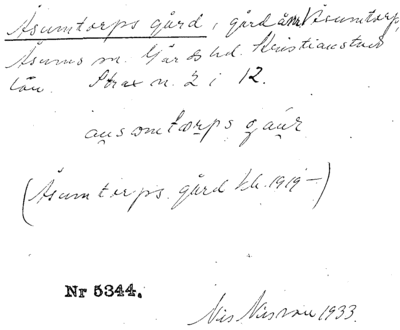 Åsumtorps gård, gård i Åsumtorp,
Åsums sn. Gärds hd. Kristianstads
län. Strax n. 2 i 12.
ausomtorps gaúr
(Åsumtorps gård kb. 1919 –)
Nr 5344.
Nils Nilsson 1933.